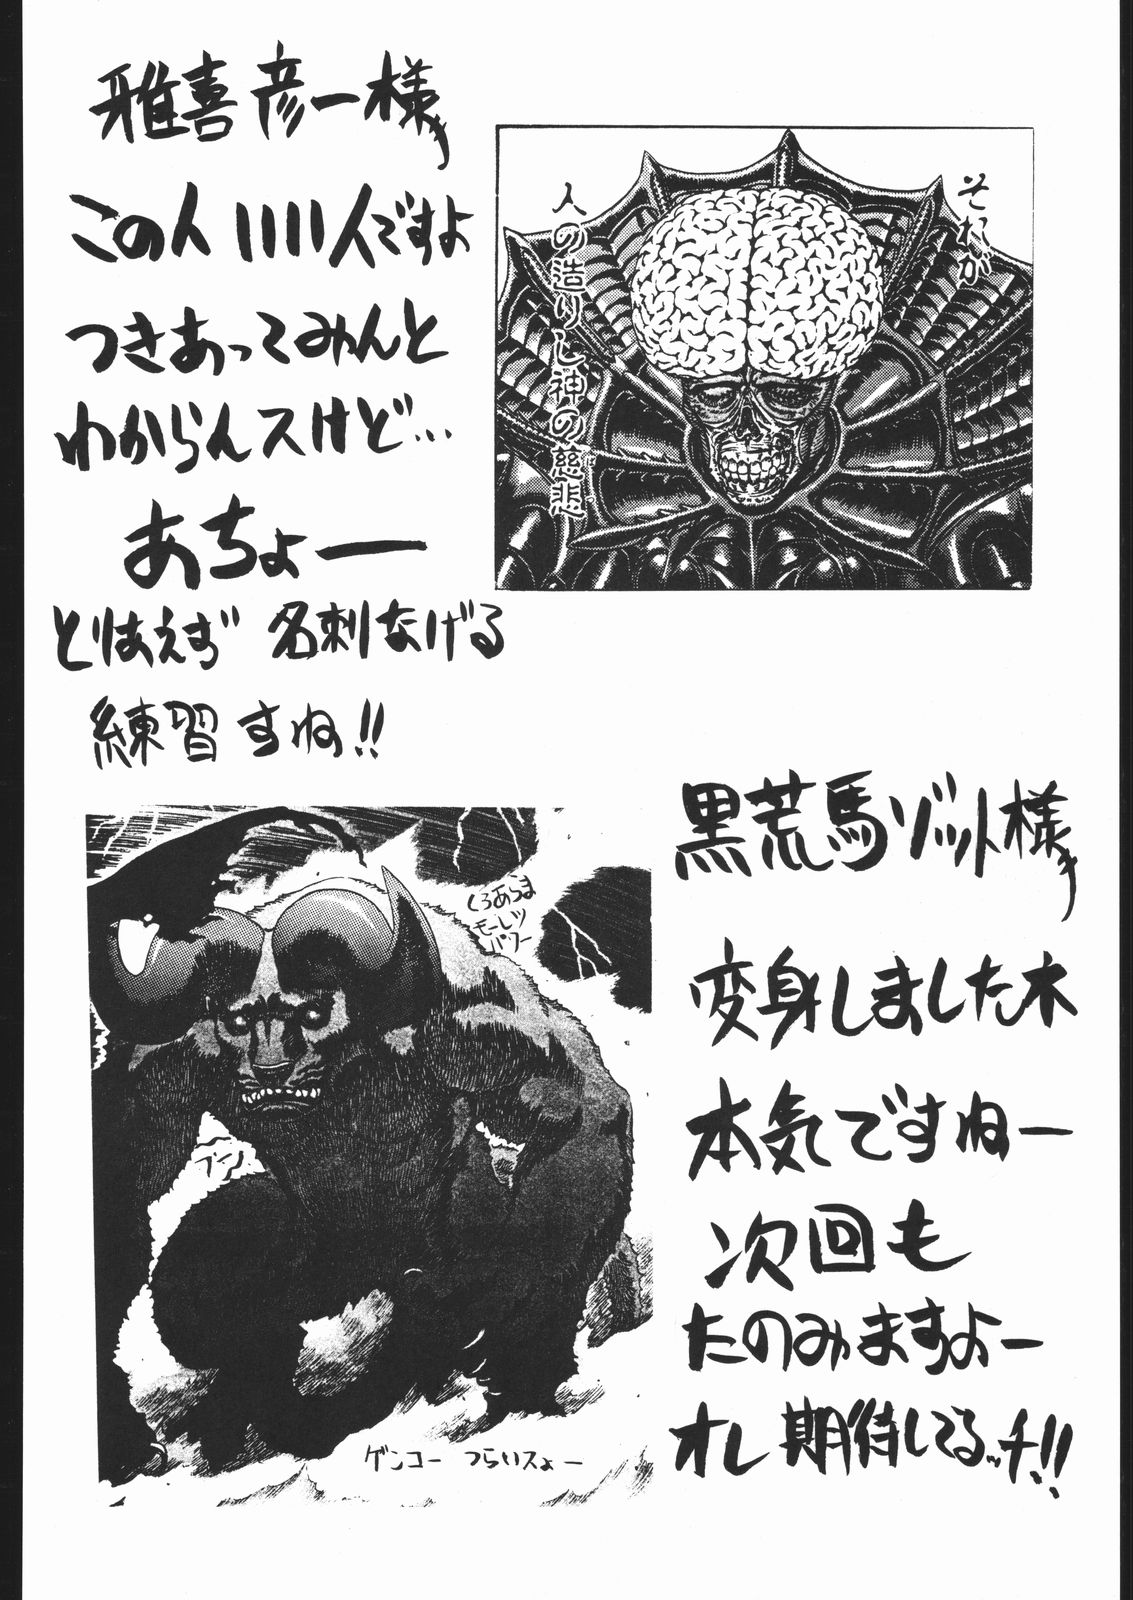 雅喜彦一様
この人いい人ですよ
つきあってみんと
わからんスけど…
あちょー
とりあえず 名刺なげる
練習すね!!
それが
人の造りし神の慈悲
黒荒馬ゾット様
変身しましたネ
本気ですねー
次回も
たのみますよー
オレ期待してるッチ!!
くろあらま
モーレツ
パワー
ゲンコー つらいスよー